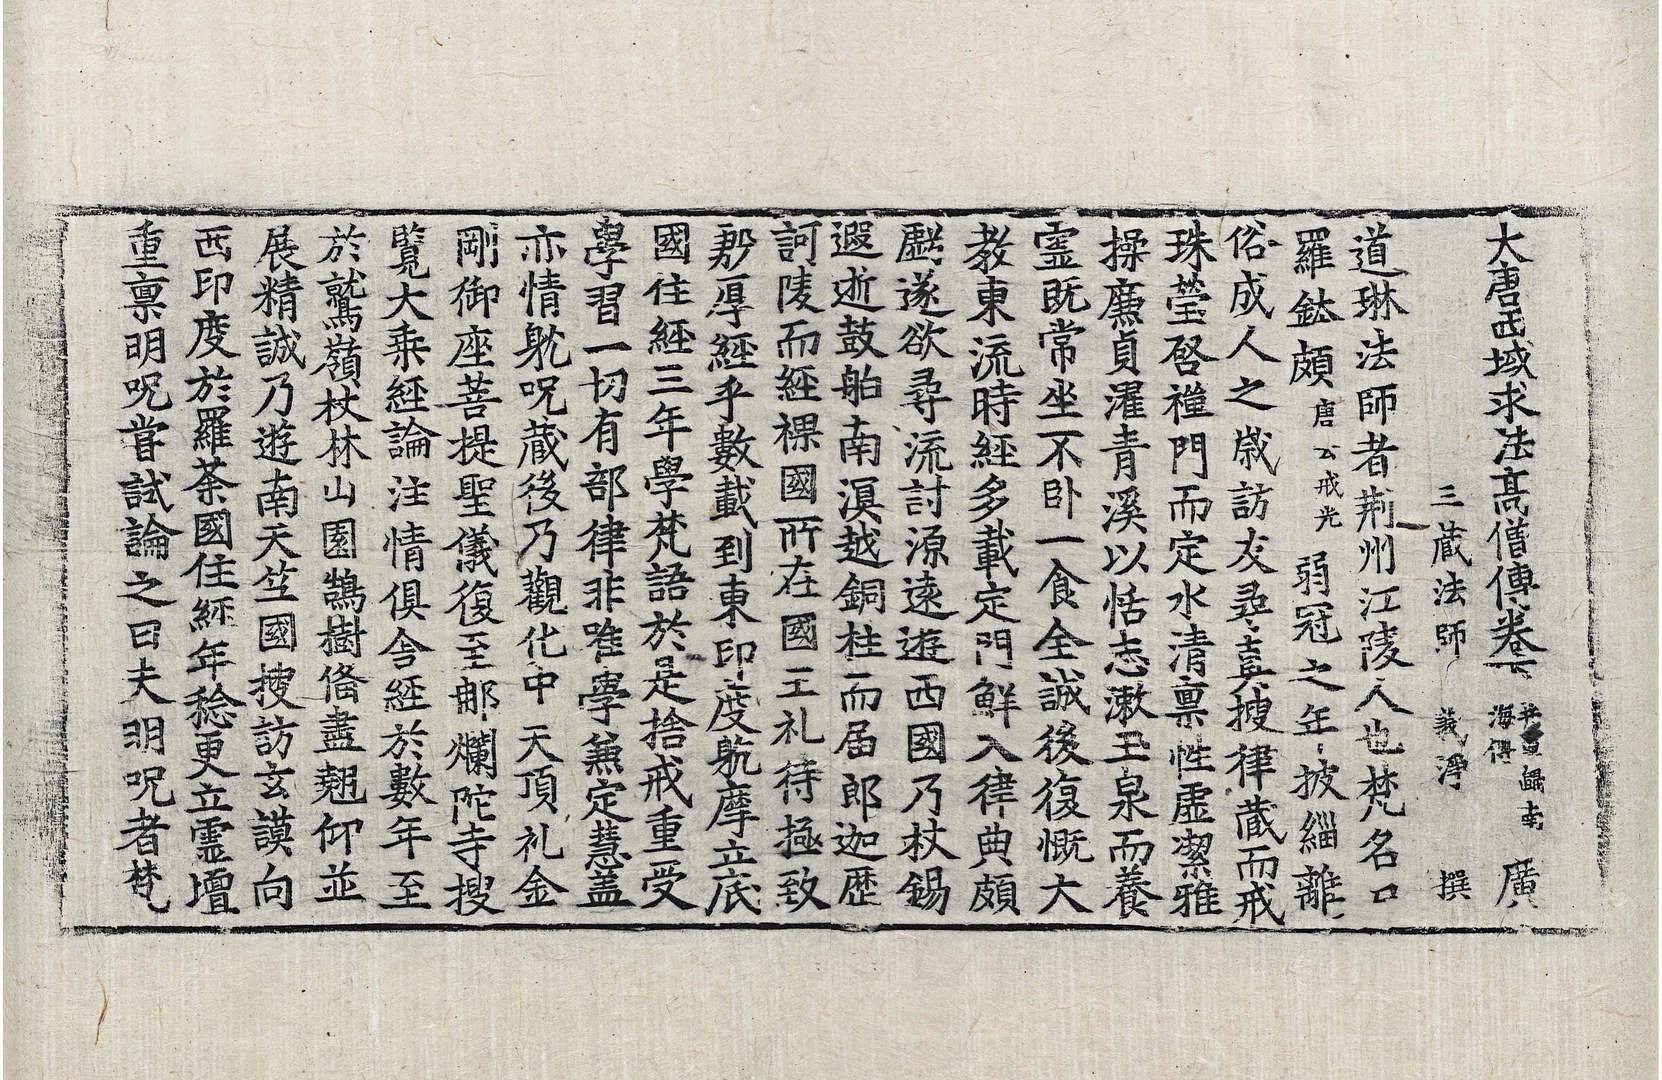 大唐西域求法髙僧傳卷下 并重歸南海傳 廣
三蔵法師 義淨 撰
道琳法師者荆州江陵人也梵名口
羅鈦頗 唐云戒光 弱冠之年披緇離
俗成人之歲訪友尋真搜律蔵而戒
珠瑩啓禪門而定水清禀性虛潔雅
操廉貞濯青溪以恬志漱玉泉而養
霊既常坐不卧一食全誠後復慨大
教東流時經多載定門鮮入律典頗
虧遂欲尋流討源遠遊西國乃杖錫
遐逝鼓舶南溟越銅柱而届郎迦歴
訶陵而經裸國所在國王礼待極致
殷厚經乎數載到東印度躭摩立底
國住經三年學梵語於是捨戒重受
學習一切有部律非唯學兼定慧蓋
亦情躭呪蔵後乃觀化中天頂礼金
剛御座菩提聖儀復至那爛陀寺搜
覽大乘經論注情俱舍經於數年至
於鷲嶺杖林山園鵠樹俻盡翹仰並
展精誠乃遊南天竺國搜訪玄謨向
西印度於羅荼國住經年稔更立霊壇
重禀明呪嘗試論之曰夫明呪者梵